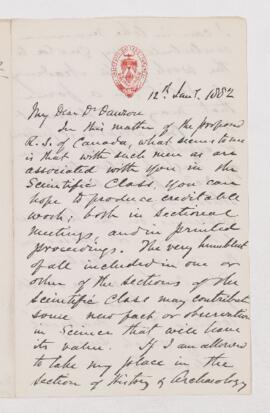 12th Jany. 1882
My Dear Dr Dawson
In this matter of the proposed
R. S. of Canada, what seems to me
is that with such men as are
associated with you in the
Scientific Class, you can
hope to produce creditable
work; both in sectional
meetings, and in printed
proceedings. The very humblest
of all included in one or
other of the sections of the
Scientific Class may contribute
some new fact or observation
in Science that will have
its value. If I am allowed
to take my place in the
section of History & Archæology